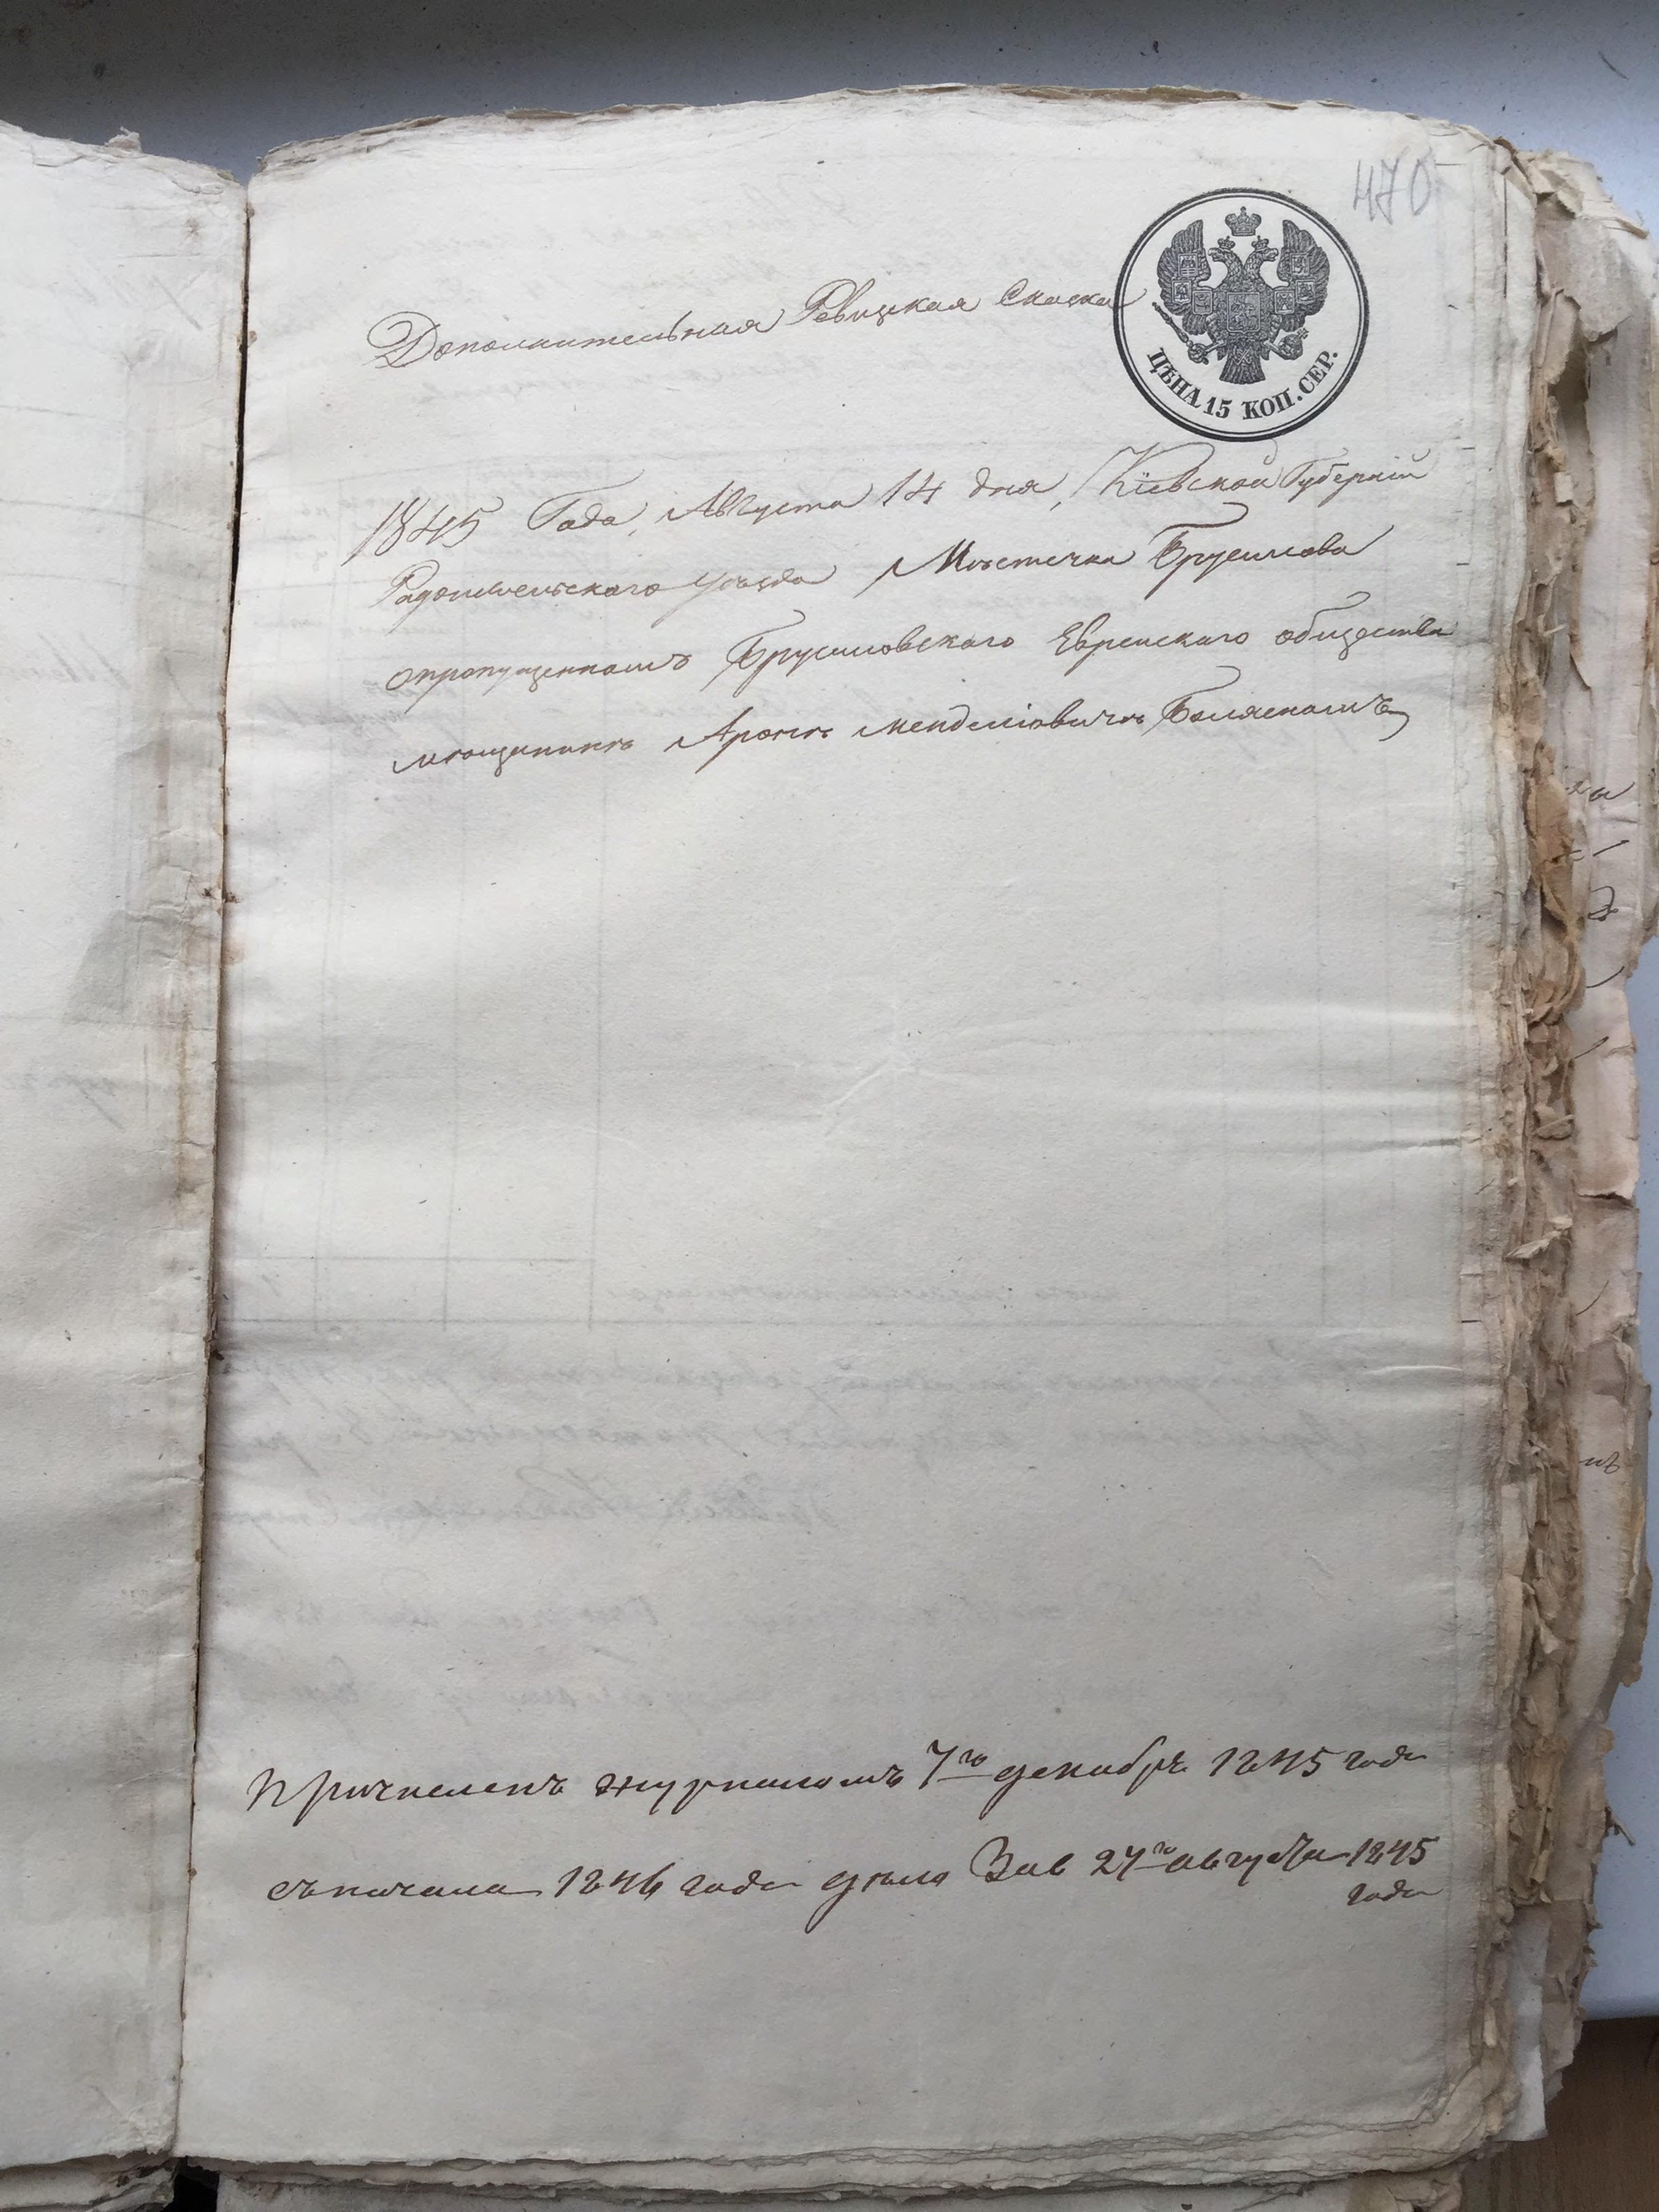 470
Дополнительная Ревизкая Сказка
ЦѢНА 15 КОП. СЕР.
1845 Года, Августа 14 дня, Кіевской Губерніи
Радомысльскаго уѣзда Мѣстечка Брусилова
опропущенномъ Брусиловскаго Еврейскаго общества
мѣщанинѣ Аронѣ Менделіовичѣ Белязскомъ
Причисленъ журналомъ 7го декабря 1845 года
съ начала 1846 года дѣло 27го августа 1845
года